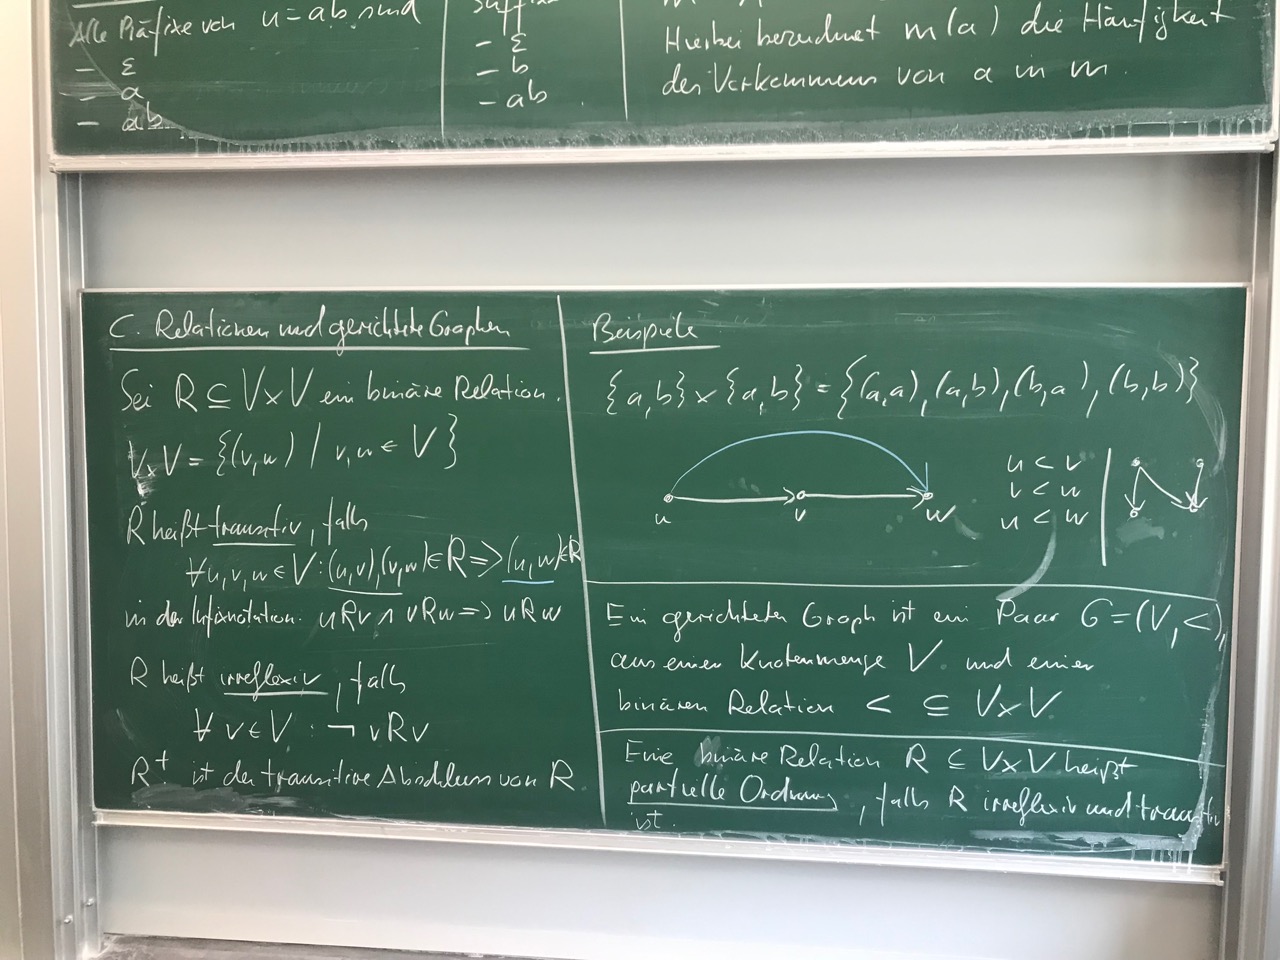 Alle Präfixe von u = ab sind
- ε
- a
- ab
- ε
- b
- ab
Hierbei bezeichnet m(a) die Häufigkeit
des Vorkommens von a in m.
C. Relationen und gerichtete Graphen
Sei R ⊆ V×V ein binäre Relation.
V×V = {(v,w) | v,w ∈ V}
R heißt transitiv, falls
∀u,v,w ∈ V : (u,v),(v,w) ∈ R => (u,w) ∈ R
in der Infixnotation: uRv ∧ vRw => uRw
R heißt irreflexiv, falls
∀ v ∈ V : ¬ vRv
R⁺ ist der transitive Abschluss von R
Beispiele
{a,b} × {a,b} = {(a,a),(a,b),(b,a),(b,b)}
u v w
u < v
v < w
u < w
Ein gerichteter Graph ist ein Paar G=(V,<),
aus einer Knotenmenge V und einer
binären Relation < ⊆ V×V
Eine binäre Relation R ⊆ V×V heißt
partielle Ordnung, falls R irreflexiv und transitiv
ist.